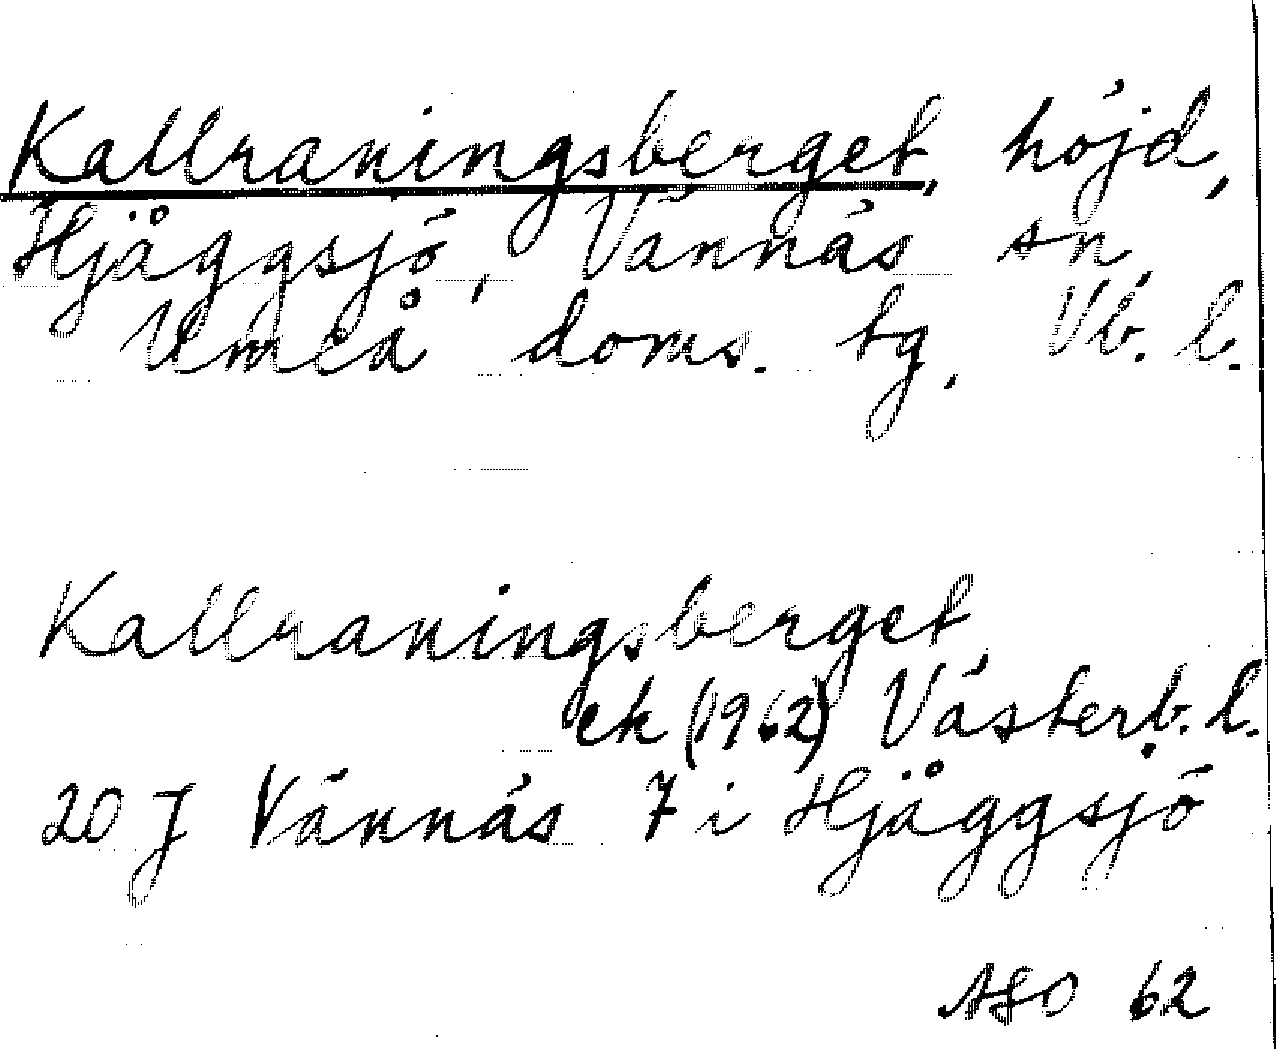 Kallraningsberget, höjd,
Hjåggsjö, Vännäs sn,
Umeå doms. tg, Vb. l.
Kallraningsberget
ek (1962) Västerb. l.
20 J Vännäs 7 i Hjåggsjö
ASO 62